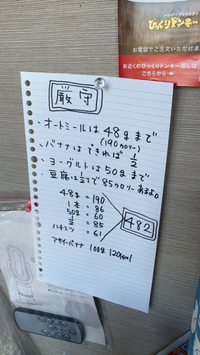 びっくりドンキー
お電話でご注文いただけま
近くのびっくりドンキー探しは
こちらから
厳守
・オートミールは48gまで
(190カロリー)
・バナナはできれば1/2
・ヨーグルトは50gまで
・豆腐は1/2で85カロリーあるよ。
48g = 190
1本 = 86
50g = 60
1/2 = 85
ハチミツ = 61
482
アサイーバナナ 100g 120kcal